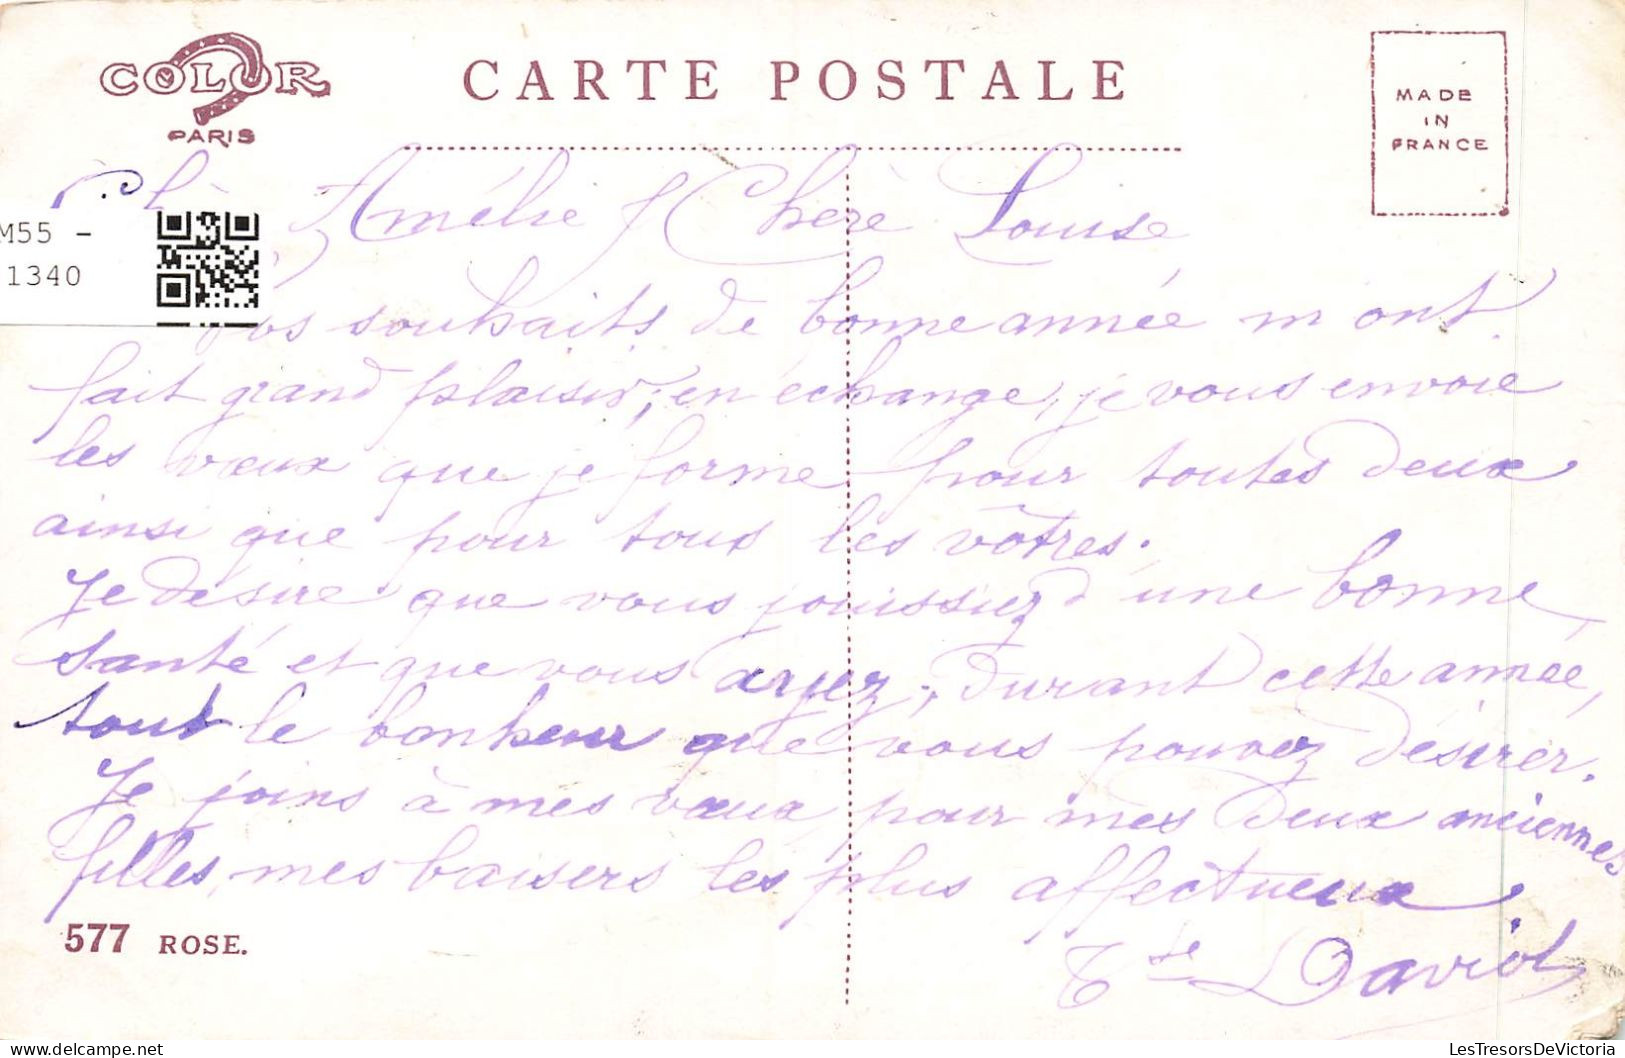 COLOR
PARIS
CARTE POSTALE
MADE
IN
FRANCE
M55 -
1340
Amélie / Chère Louise
Vos souhaits de bonne année m ont
fait grand plaisir, en échange, je vous envoie
les vœux que je forme pour toutes deux
ainsi que pour tous les vôtres.
Je désire que vous jouissiez d'une bonne
santé et que vous ayez, durant cette année,
tout le bonheur que vous pouvez désirer.
Je joins à mes vœux, pour mes deux anciennes
filles, mes baisers les plus affectueux.
David
577 ROSE.
LesTresorsDeVictoria